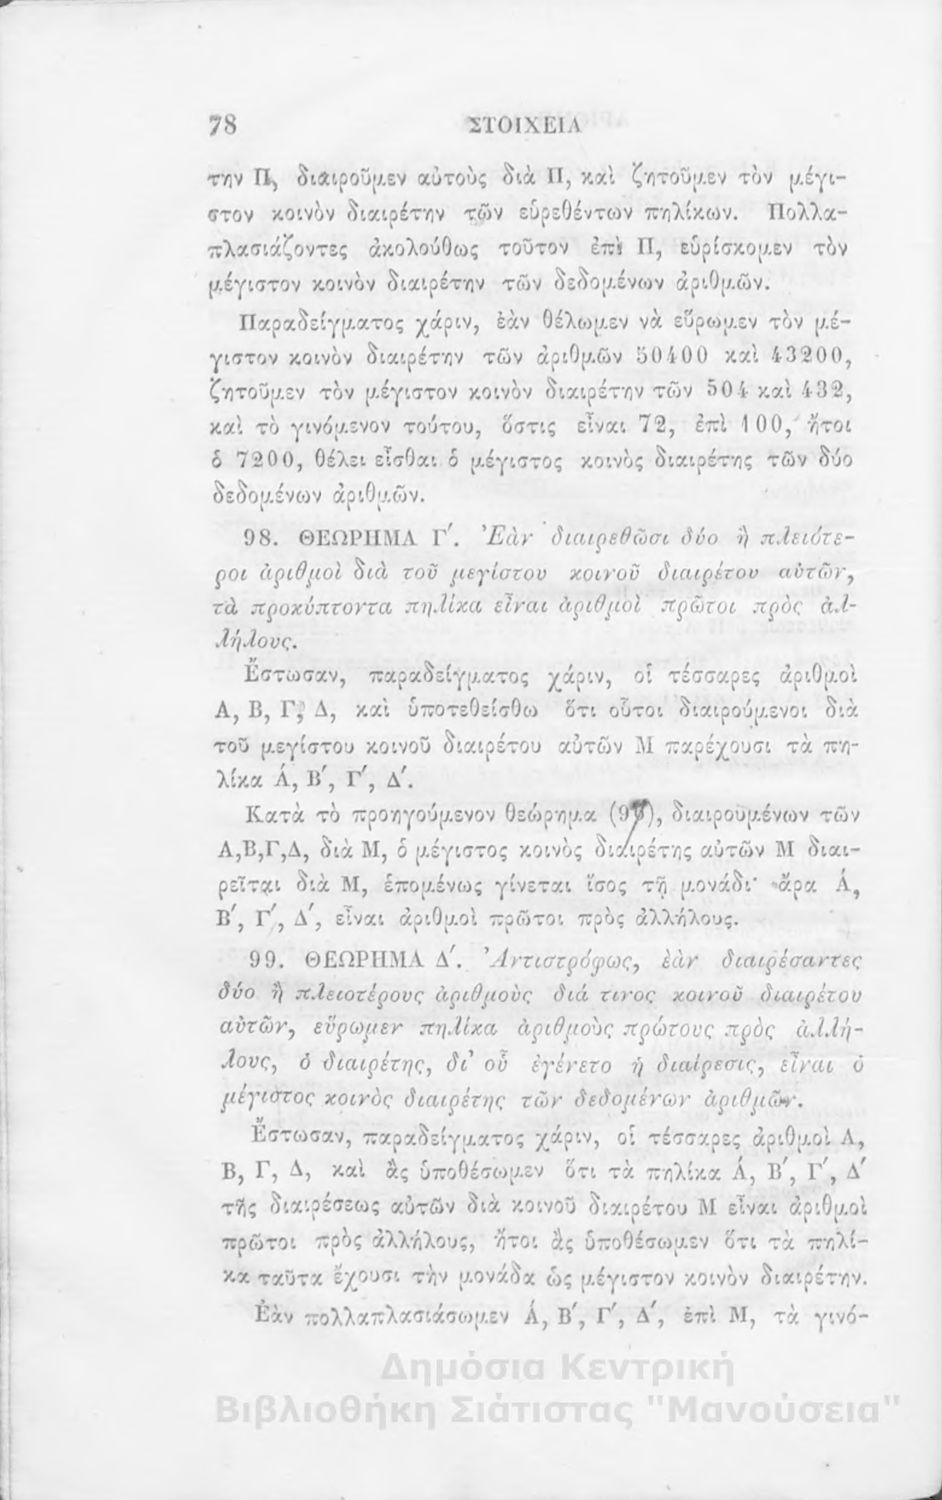 78 ΣΤΟΙΧΕΙΑ
την Π, διαιροῦμεν αὐτοὺς διὰ Π, καὶ ζητοῦμεν τὸν μέγι-
στον κοινὸν διαιρέτην τῶν εὑρεθέντων πηλίκων. Πολλα-
πλασιάζοντες ἀκολούθως τοῦτον ἐπὶ Π, εὑρίσκομεν τὸν
μέγιστον κοινὸν διαιρέτην τῶν δεδομένων ἀριθμῶν.
Παραδείγματος χάριν, ἐὰν θέλωμεν νὰ εὕρωμεν τὸν μέ-
γιστον κοινὸν διαιρέτην τῶν ἀριθμῶν 50400 καὶ 43200,
ζητοῦμεν τὸν μέγιστον κοινὸν διαιρέτην τῶν 504 καὶ 432,
καὶ τὸ γινόμενον τούτου, ὅστις εἶναι 72, ἐπὶ 100, ἤτοι
ὁ 7200, θέλει εἶσθαι ὁ μέγιστος κοινὸς διαιρέτης τῶν δύο
δεδομένων ἀριθμῶν.
98. ΘΕΩΡΗΜΑ Γ'. Ἐὰν διαιρεθῶσι δύο ἢ πλειότε-
ροι ἀριθμοὶ διὰ τοῦ μεγίστου κοινοῦ διαιρέτου αὐτῶν,
τὰ προκύπτοντα πηλίκα εἶναι ἀριθμοὶ πρῶτοι πρὸς ἀλ-
λήλους.
Ἔστωσαν, παραδείγματος χάριν, οἱ τέσσαρες ἀριθμοὶ
Α, Β, Γ, Δ, καὶ ὑποτεθείσθω ὅτι οὗτοι διαιρούμενοι διὰ
τοῦ μεγίστου κοινοῦ διαιρέτου αὐτῶν Μ παρέχουσι τὰ πη-
λίκα Α', Β', Γ', Δ'.
Κατὰ τὸ προηγούμενον θεώρημα (97), διαιρουμένων τῶν
Α,Β,Γ,Δ, διὰ Μ, ὁ μέγιστος κοινὸς διαιρέτης αὐτῶν Μ διαι-
ρεῖται διὰ Μ, ἑπομένως γίνεται ἴσος τῇ μονάδι· ἄρα Α',
Β', Γ', Δ', εἶναι ἀριθμοὶ πρῶτοι πρὸς ἀλλήλους.
99. ΘΕΩΡΗΜΑ Δ'. Ἀντιστρόφως, ἐὰν διαιρέσαντες
δύο ἢ πλειοτέρους ἀριθμοὺς διά τινος κοινοῦ διαιρέτου
αὐτῶν, εὕρωμεν πηλίκα ἀριθμοὺς πρώτους πρὸς ἀλλή-
λους, ὁ διαιρέτης, δι' οὗ ἐγένετο ἡ διαίρεσις, εἶναι ὁ
μέγιστος κοινὸς διαιρέτης τῶν δεδομένων ἀριθμῶν.
Ἔστωσαν, παραδείγματος χάριν, οἱ τέσσαρες ἀριθμοὶ Α,
Β, Γ, Δ, καὶ ἂς ὑποθέσωμεν ὅτι τὰ πηλίκα Α', Β', Γ', Δ'
τῆς διαιρέσεως αὐτῶν διὰ κοινοῦ διαιρέτου Μ εἶναι ἀριθμοὶ
πρῶτοι πρὸς ἀλλήλους, ἤτοι ἂς ὑποθέσωμεν ὅτι τὰ πηλί-
κα ταῦτα ἔχουσι τὴν μονάδα ὡς μέγιστον κοινὸν διαιρέτην.
Ἐὰν πολλαπλασιάσωμεν Α', Β', Γ', Δ', ἐπὶ Μ, τὰ γινό-
Δημόσια Κεντρική
Βιβλιοθήκη Σιάτιστας "Μανούσεια"